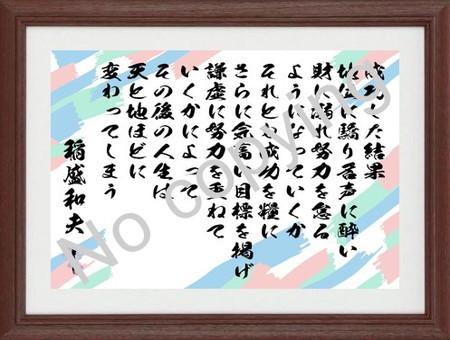 成功した結果
地位に驕り名声に酔い
財に溺れ努力を怠る
ようになっていくか
それとも成功を糧に
さらに気高い目標を掲げ
謙虚に努力を重ねて
いくかによって
その後の人生は
天と地ほどに
変わってしまう
稲盛和夫
No copying